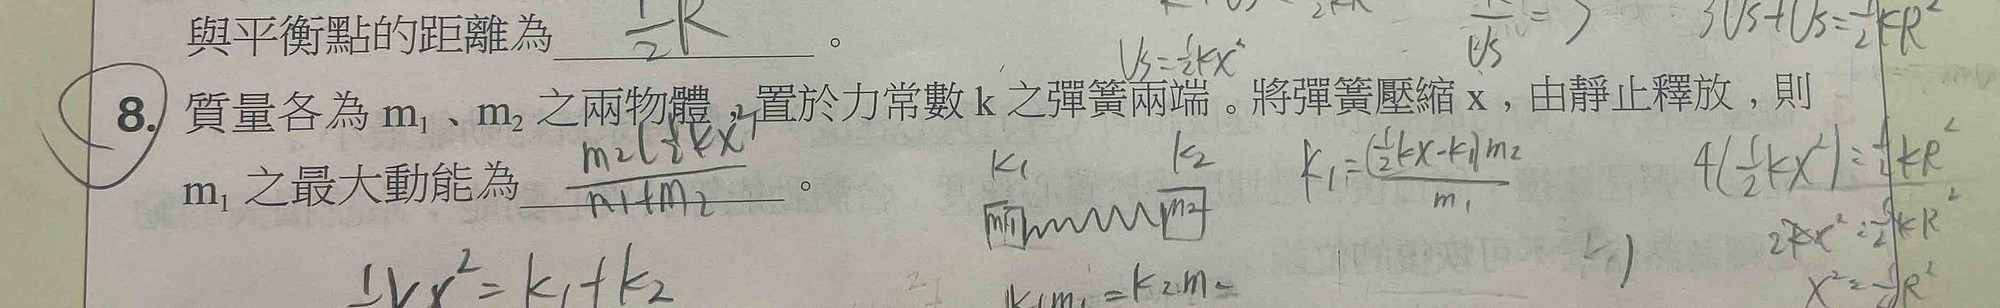 與平衡點的距離為 1/2 R 。
Us=½kx²
3Us+Us=½kR²
8. 質量各為 m₁、m₂ 之兩物體，置於力常數 k 之彈簧兩端。將彈簧壓縮 x，由靜止釋放，則
m₁ 之最大動能為 m₂(½kx²)/m₁+m₂ 。
k₁ k₂
m₁ m₂
k₁=(½kx-k₁)m₂/m₁
4(½kx²)=½kR²
2kx²=½kR²
½kx²=k₁+k₂
k₁m₁=k₂m₂